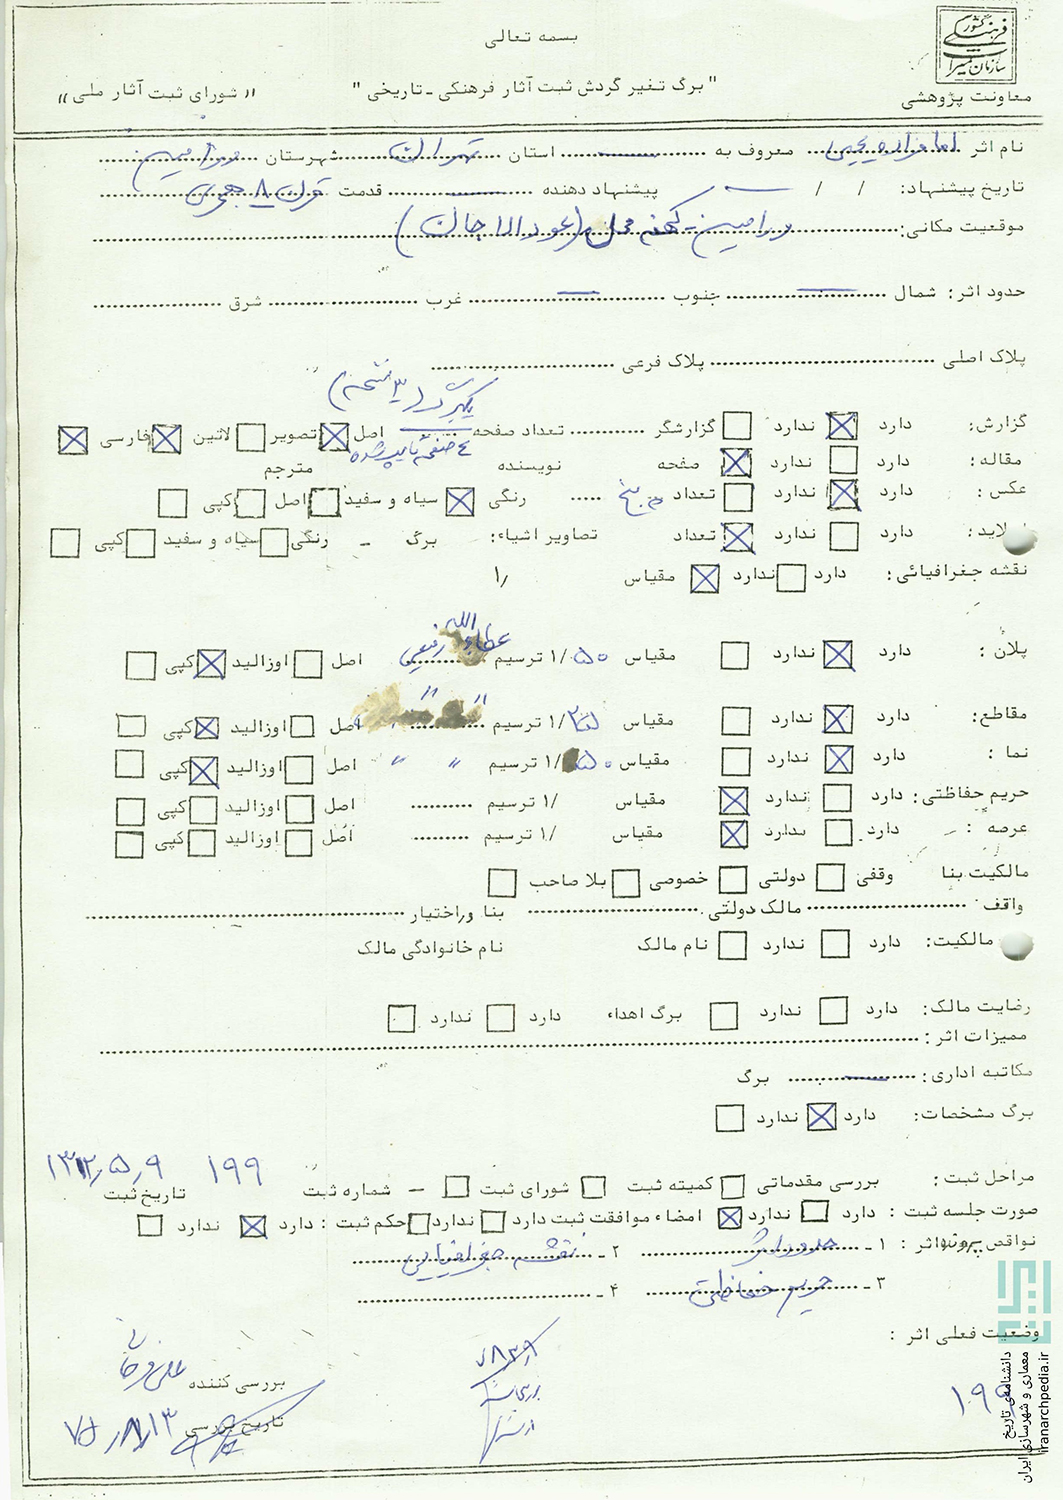 سازمان میراث فرهنگی کشور
معاونت پژوهشی
بسمه تعالی
"برگ تغیر گردش ثبت آثار فرهنگی ـ تاریخی"
"شورای ثبت آثار ملی"
نام اثر امامزاده یحیی معروف به استان تهران شهرستان ورامین
تاریخ پیشنهاد: / / پیشنهاد دهنده قدمت قرن ۸ هجری
موقعیت مکانی: ورامین ـ کهنه محل (عودلاجان)
حدود اثر: شمال جنوب غرب شرق
پلاک اصلی پلاک فرعی
یکسری در (۳ نسخه)
گزارش: دارد ندارد گزارشگر تعداد صفحه اصل تصویر لاتین فارسی
۴ صفحه تایپ شده
مقاله: دارد ندارد صفحه نویسنده مترجم
عکس: دارد ندارد تعداد رنگی سیاه و سفید اصل کپی
لاید: دارد ندارد تعداد تصاویر اشیاء: برگ - رنگی سیاه و سفید کپی
نقشه جغرافیائی: دارد ندارد مقیاس ۱/
پلان: دارد ندارد مقیاس ۱/۵۰ ترسیم عطاءالله رفیعی اصل اوزالید کپی
مقاطع: دارد ندارد مقیاس ۱/ ترسیم " " اصل اوزالید کپی
نما: دارد ندارد مقیاس ۱/۵۰ ترسیم " " اصل اوزالید کپی
حریم حفاظتی: دارد ندارد مقیاس ۱/ ترسیم اصل اوزالید کپی
عرصه: دارد ندارد مقیاس ۱/ ترسیم اصل اوزالید کپی
مالکیت بنا وقفی دولتی خصوصی بلا صاحب
واقف مالک دولتی بنا وراختیار
مالکیت: دارد ندارد نام مالک نام خانوادگی مالک
رضایت مالک: دارد ندارد برگ اهداء دارد ندارد
ممیزات اثر:
مکاتبه اداری: برگ
برگ مشخصات: دارد ندارد
مراحل ثبت: بررسی مقدماتی کمیته ثبت شورای ثبت - شماره ثبت ۱۹۹ تاریخ ثبت ۱۳۱۲٫۵٫۹
صورت جلسه ثبت: دارد ندارد امضاء موافقت ثبت دارد ندارد حکم ثبت: دارد ندارد
نواقص پرونده اثر: ۱ ـ حدود اثر ۲ ـ نقشه جغرافیایی
۳ ـ حریم حفاظتی ۴ ـ
وضعیت فعلی اثر:
بررسی کننده علی فرخانی
تاریخ بررسی ۷۵٫۸٫۱۳
بررسی شد
۱۹۹
دانشنامه‌ی تاریخ
معماری و شهرسازی ایران
iranarchpedia.ir